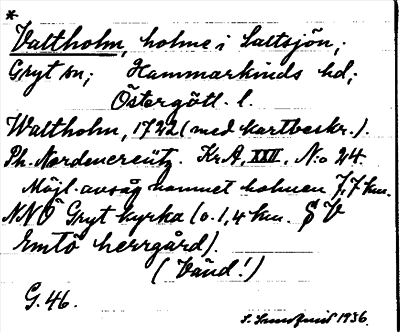 *
Valtholm, holme i Saltsjön,
Gryt sn; Hammarkinds hd;
Östergötl. l.
Waltholm, 1722 (med kartbeskr.).
Ph. Nordencreütz. Kr.A. XXII. N:o 24.
Möjl. avsåg namnet holmen 7,7 km.
NNÖ Gryt kyrka (o. 1,4 km. SV
Emtö herrgård).
(Vänd!)
G. 46.
S. 1936.